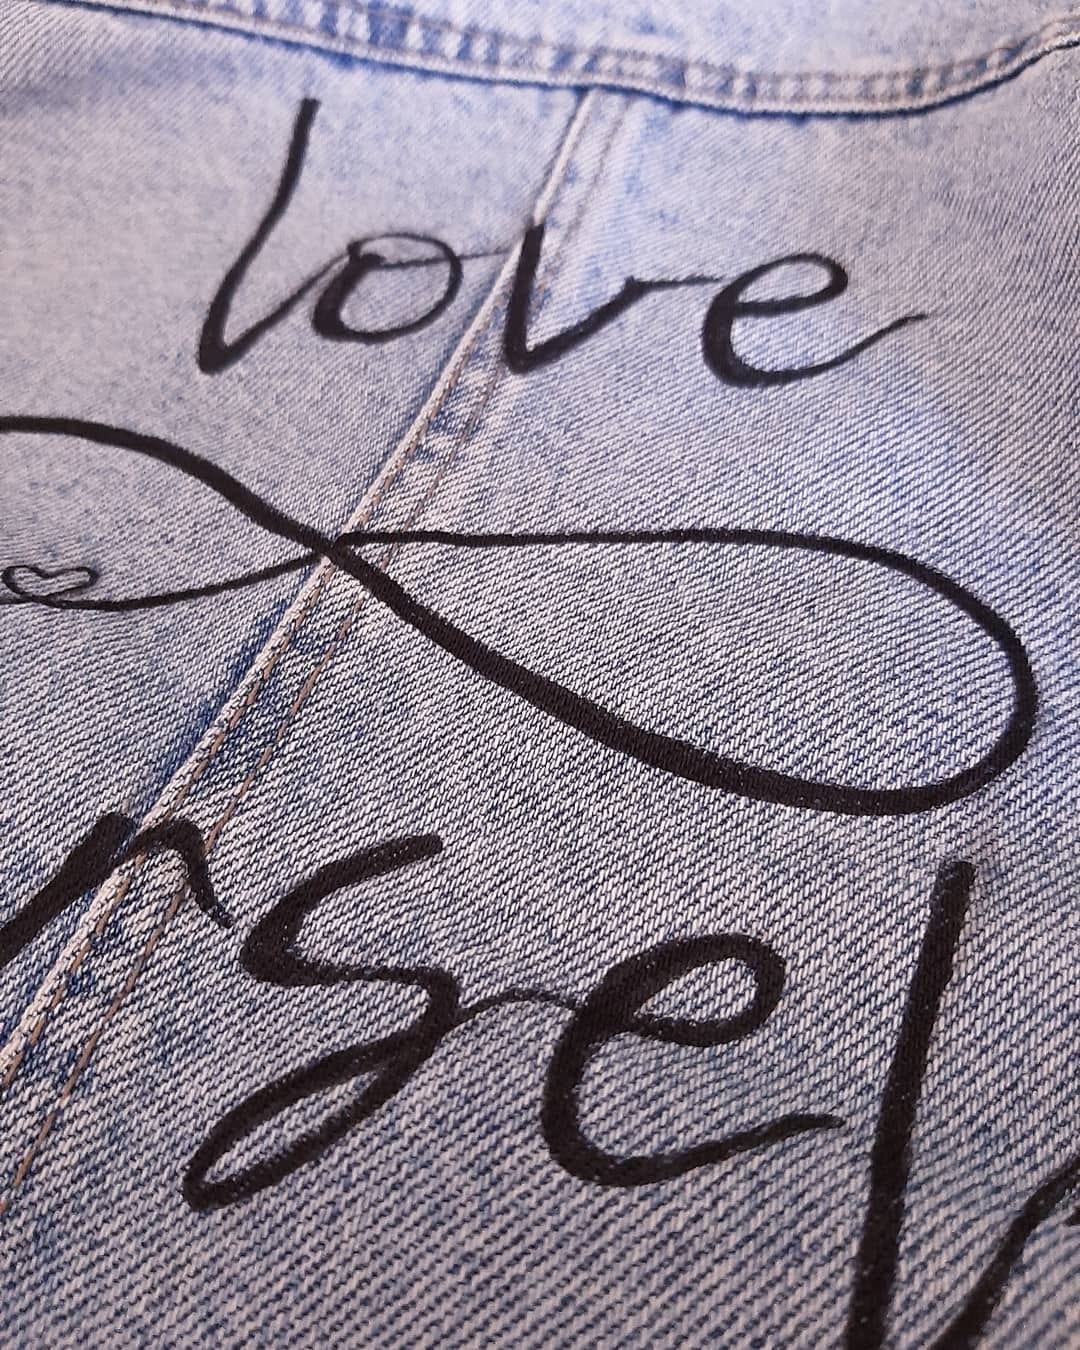 love
rsel